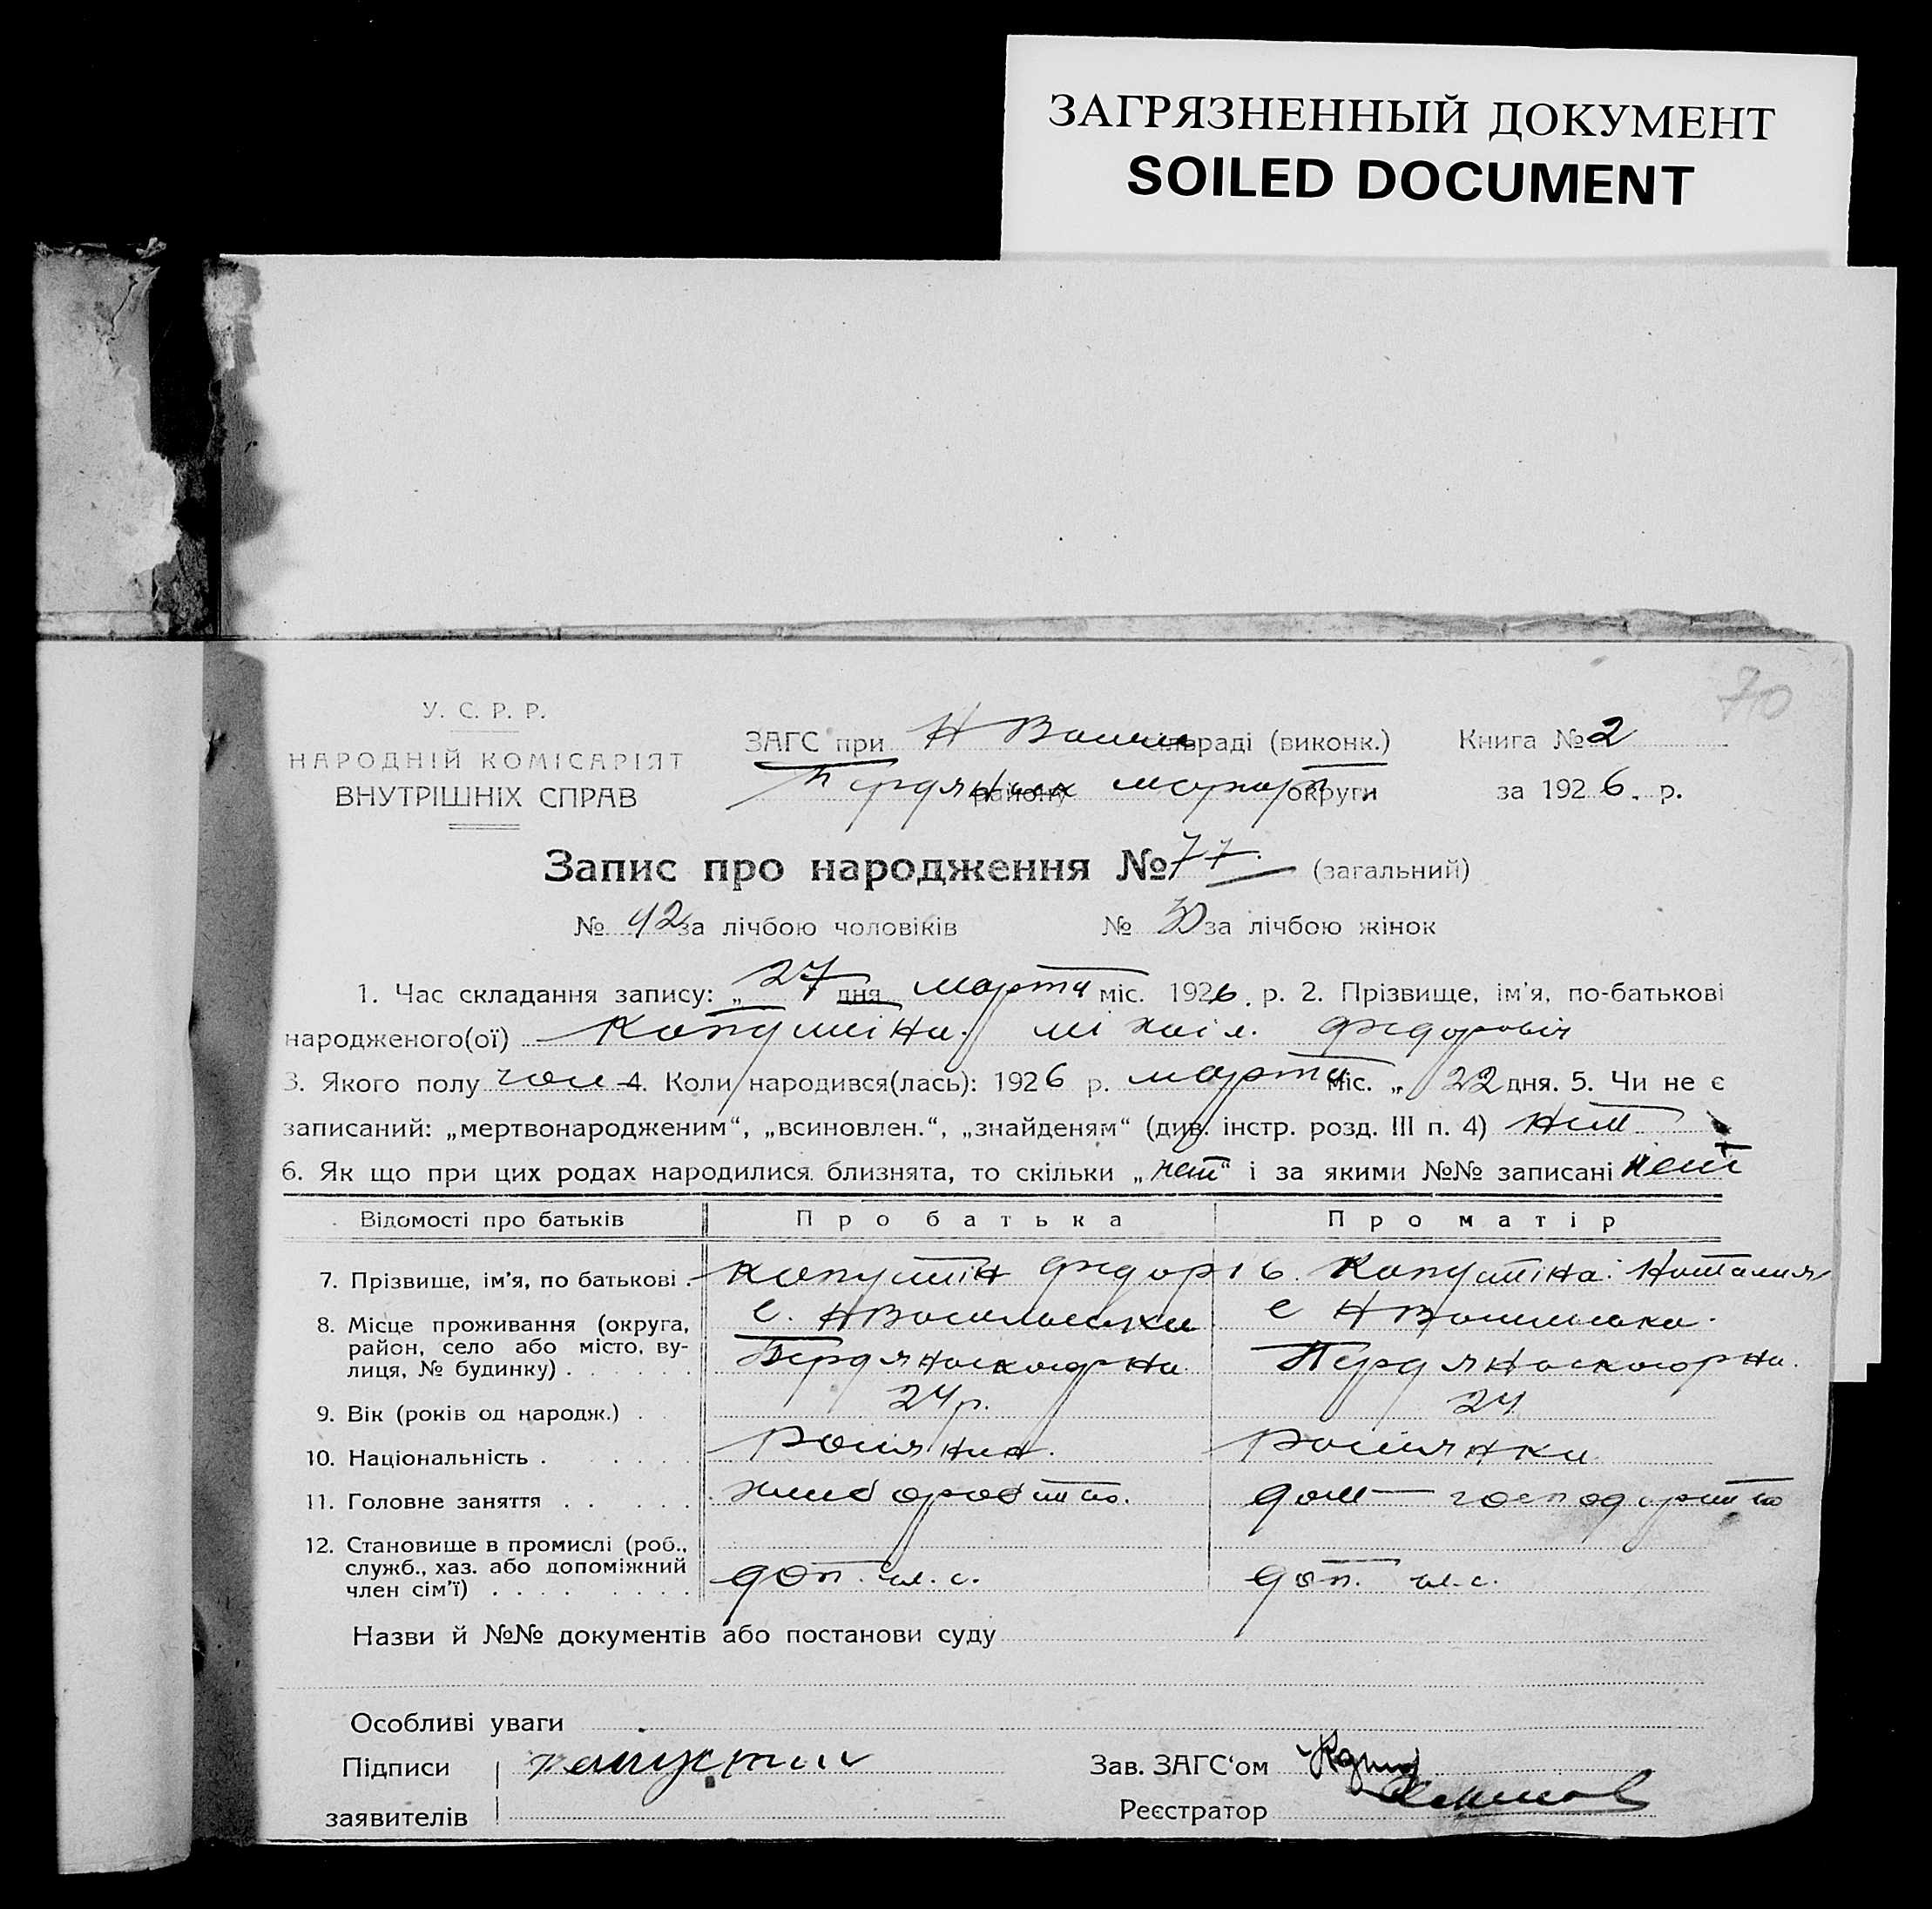 ЗАГРЯЗНЕННЫЙ ДОКУМЕНТ
SOILED DOCUMENT
70
У. С. Р. Р.
НАРОДНІЙ КОМІСАРІЯТ
ВНУТРІШНІХ СПРАВ
ЗАГС при Н сільраді (виконк.)
району округи
Книга № 2
за 1926. р.
Запис про народження № 77. (загальний)
№ 42 за лічбою чоловіків № 30 за лічбою жінок
1. Час складання запису: „ 27 дня марта міс. 1926. р. 2. Прізвище, ім'я, по-батькові
народженого(ої) Капустіна. Міхаіл. Федоровіч
3. Якого полу чол 4. Коли народився(лась): 1926 р. марта міс. „ 22 дня. 5. Чи не є
записаний: „мертвонародженим“, „всиновлен.“, „знайденям“ (див. інстр. розд. III п. 4) нет
6. Як що при цих родах народилися близнята, то скільки „нет“ і за якими №№ записані нет
Відомості про батьків Про батька Про матір
7. Прізвище, ім'я, по батькові . Капустін Федор Капустіна Наталия
8. Місце проживання (округа, с. НВасильевка с НВасильевка.
район, село або місто, ву-
лиця, № будинку) . . . . . .
9. Вік (років од народж.) . 24 р. 24
10. Національність . . . . . Росиянин. Росиянка
11. Головне заняття . . . . . хлиборобство. дом — господарство
12. Становище в промислі (роб.,
служб., хаз. або допоміжний
член сім'ї) . . . . . . . . доп. чл. с. доп. чл. с.
Назви й №№ документів або постанови суду
Особливі уваги
Підписи Капустин Зав. ЗАГС'ом
заявителів Реєстратор